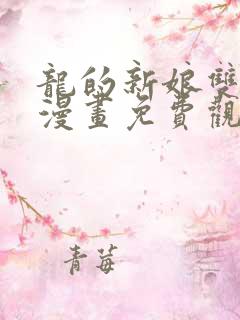 龍的新娘雙
漫畫免費觀
青莓